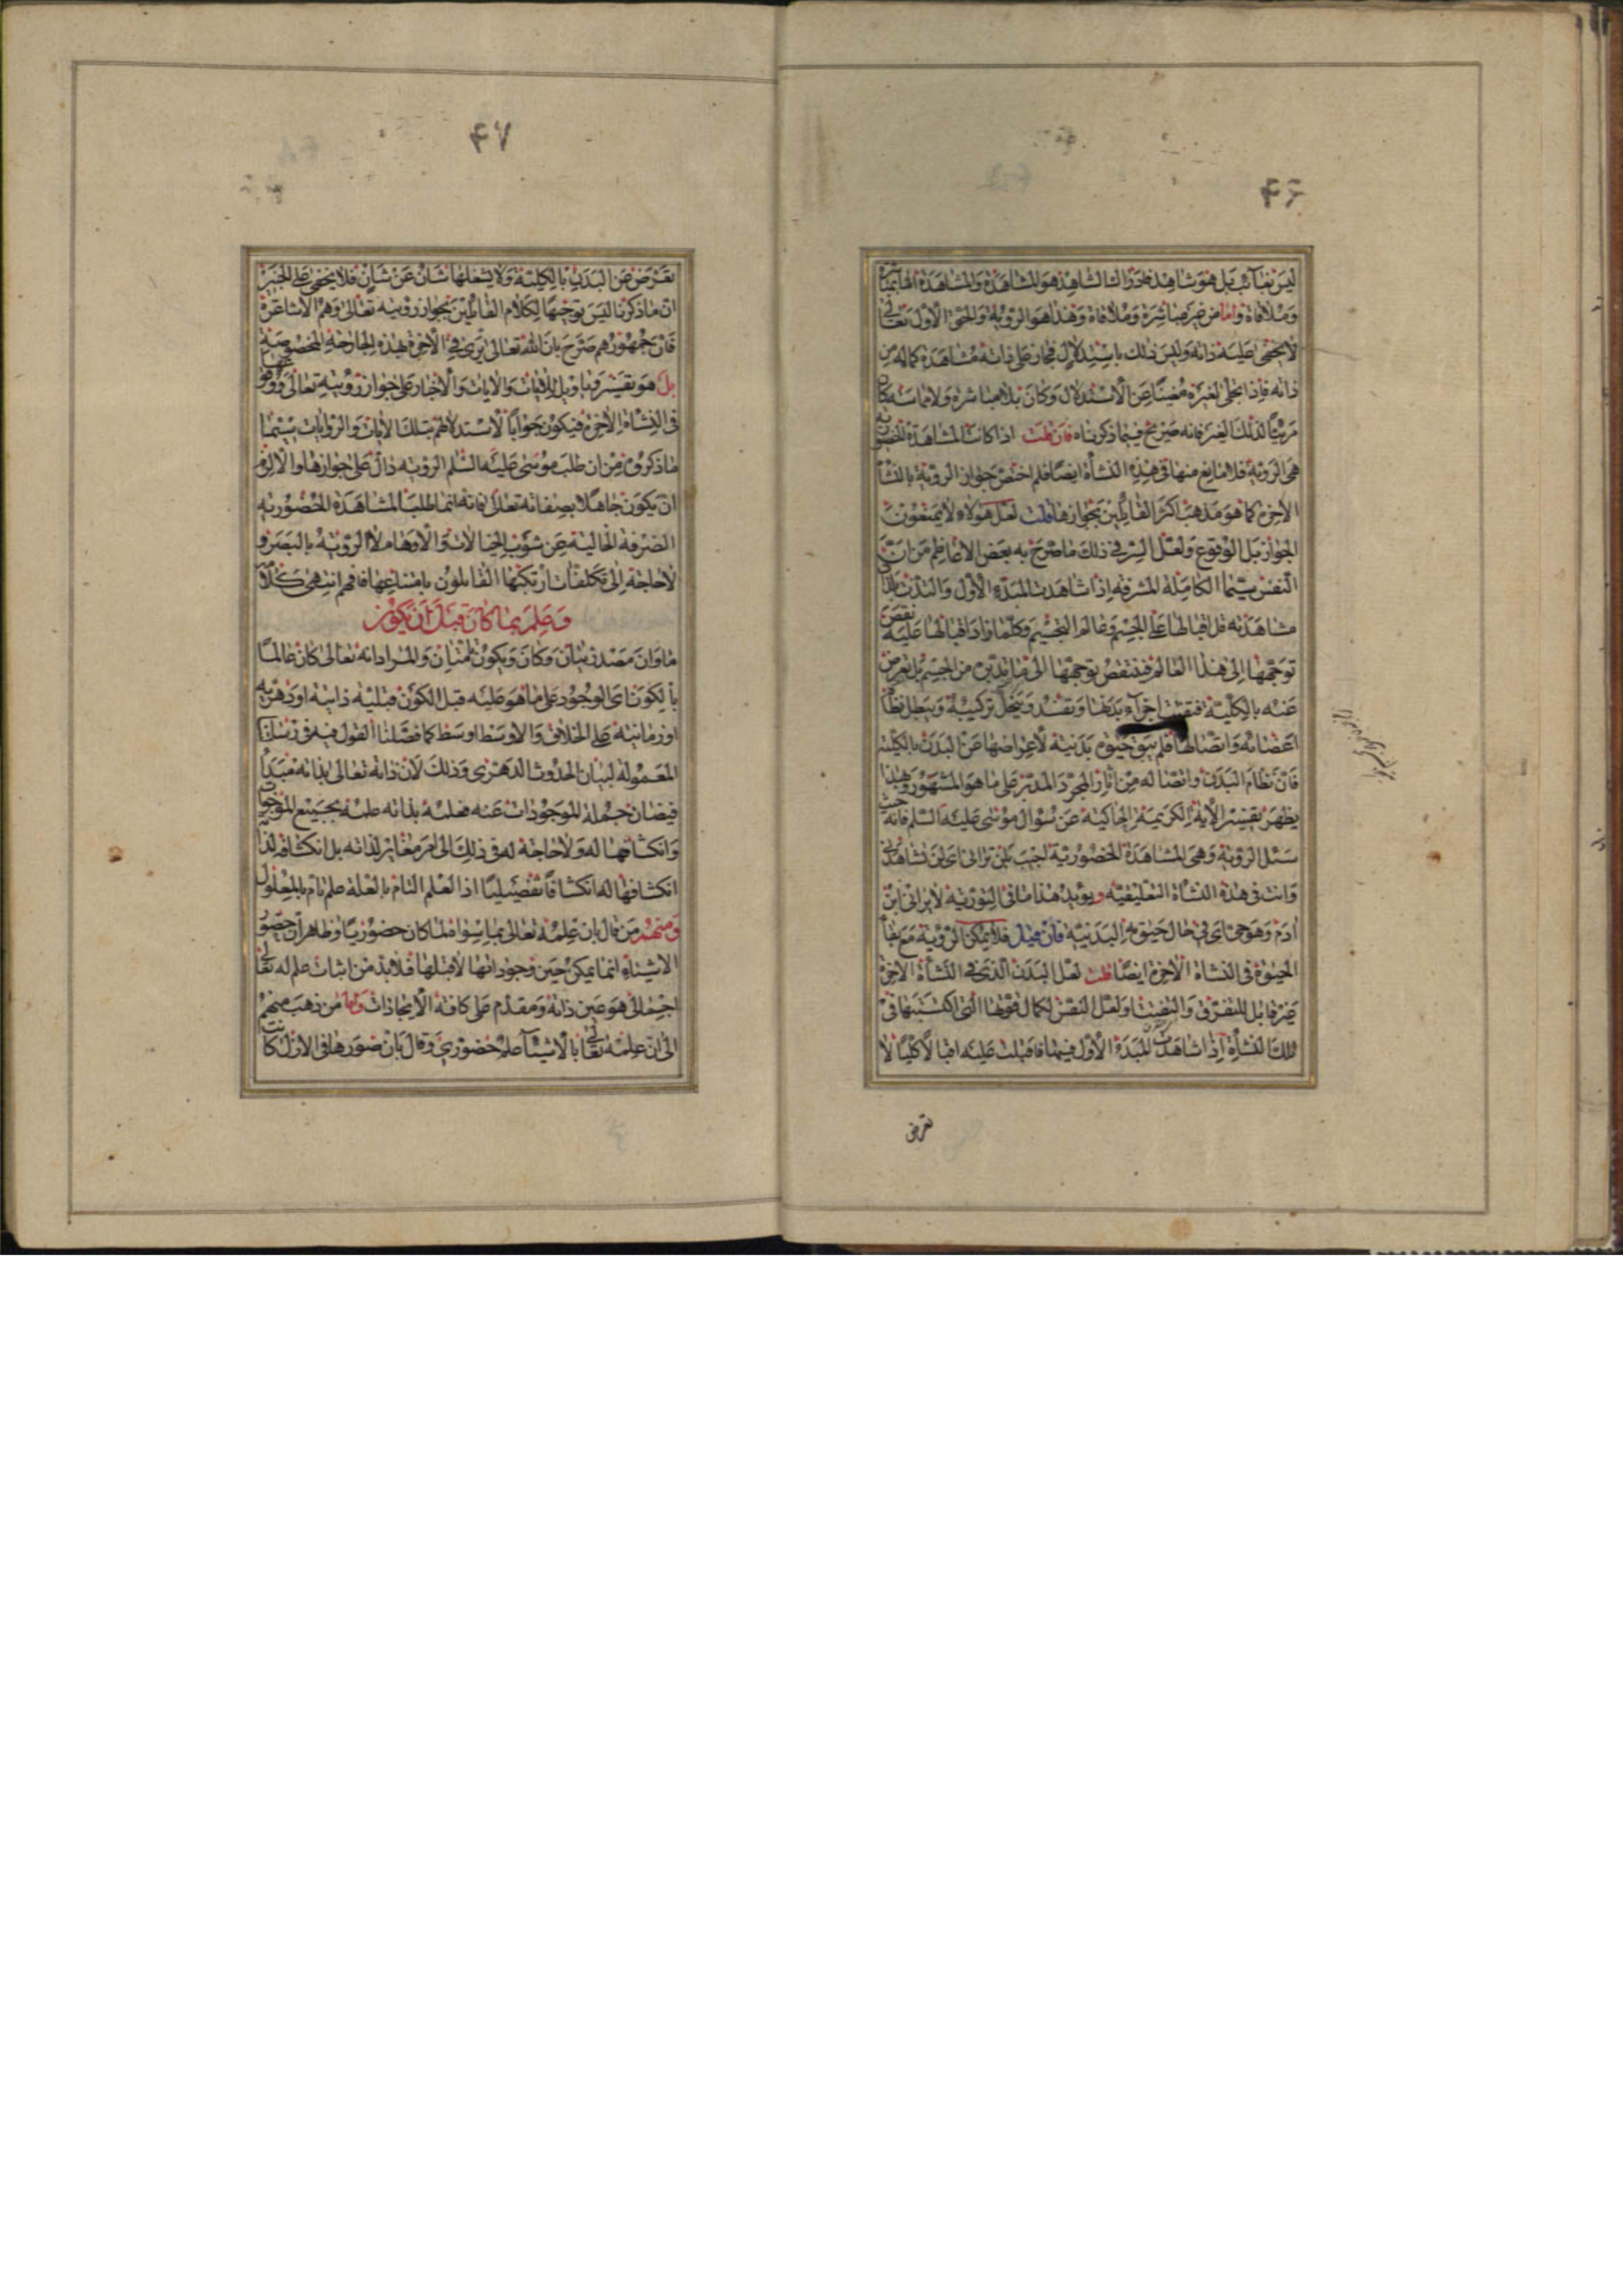 ۴۶
ليس بغائب بل هو شاهد فلذا الشاهد هو المشاهدة والمشاهدة اما بمباشرة
وملاقاة واما من غير مباشرة وملاقاة وهذا هو الرؤية والحق الاول تعالى
لا يخفى عليه ذاته وليس ذلك باستدلال فجاز على ذاته مشاهدة كماله من
ذاته فاذا تجلى لغيره مغنيا عن الاستدلال وكان بلا مباشرة ولا مماسة كان
مرئيا لذلك الغير فانه صريح فيما ذكرناه فان قلت اذا كانت المشاهدة الحضورية
هي الرؤية فلا مانع منها في هذه النشأة ايضا فلم اختص جواز الرؤية بالنشأة
الاخرة كما هو مذهب اكثر القائلين بجوازها قلت لعل هؤلاء لا يمنعون
الجواز بل الوقوع ولعل السر في ذلك ما صرح به بعض الاعاظم من ان
النفس سيما الكاملة المشرفة اذا شاهدت المبدء الاول والتذت بلذة
مشاهدته قل اقبالها على الجسم وعالم التجسيم وكلما زاد اقبالها عليه نقص
توجهها الى هذا العالم فينتقص توجهها الى ما تدبره من الجسم بل تعرض
عنه بالكلية فتفتت اجزاء بدنها وتفسد وينحل تركيبه ويبطل نظام
اعضائه واتصالها فلم يبق حيوة بدنية لاعراضها عن البدن بالكلية
فان نظام البدن واتصاله من اثار المجرد المدبر على ما هو المشهور وبهذا
يظهر تفسير الاية الكريمة الحاكية عن سؤال موسى عليه السلم فانه حيث
سئل الرؤية وهي المشاهدة الحضورية اجيب بلن تراني اي لن تشاهدني
وانت في هذه النشأة التعليقية ويؤيد هذا ما في التورية لا يراني ابن
ادم وهو حي اى في حال حيوته البدنية فان قيل فلا يمكن الرؤية مع بقاء
الحيوة في النشأة الاخرة ايضا قلت لعل البدن الذي في النشأة الاخرة
غير قابل للتفرق والتفتت او لعل النفس لكمال قوتها التي اكتسبتها في
تلك النشأة اذا شاهدت المبدء الاول فيها فاقبلت عليه اقبالا كليا لا
تعرض
۴۷
تعرض عن البدن بالكلية ولا يشغلها شان عن شان فلا يخفى على الخبير
ان ما ذكرنا ليس توجيها لكلام القائلين بجواز رؤيته تعالى وهم الاشاعرة
فان جمهورهم صرح بان الله تعالى يرى في الاخرة بهذه الجارحة المخصوصة
بل هو تفسير وتاويل للايات والاخبار على جواز رؤيته تعالى ووقوعها
في النشأة الاخرة فيكون جوابا لاستدلالهم بتلك الايات والروايات سيما
ما ذكروه من ان طلب موسى عليه السلم الرؤية دال على جوازها والا لزم
ان يكون جاهلا بصفاته تعالى فانه انما طلب المشاهدة الحضورية
الصرفة الخالية عن شوب الخيالات والاوهام لا الرؤية بالبصر و
لا حاجة الى تكلفات ارتكبها القائلون بامتناعها فافهم انتهى كلامه
وعلم بما كان قبل ان يكون
ما وان مصدريتان وكان ويكون تامتان والمراد انه تعالى كان عالما
بالكون اى الوجود على ما هو عليه قبل الكون قبلية ذاتية او دهرية
او زمانية على الخلاف والاوسط اوسط كما فصلنا القول فيه في رسالتنا
المعمولة لبيان الحدوث الدهري وذلك لان ذاته تعالى بذاته مبدأ
فيضان جملة الموجودات عنه فعلمه بذاته علمه بجميع الموجودات
وانكشافها له ولا حاجة له في ذلك الى امر مغاير لذاته بل انكشافه لذاته
انكشافها له انكشافا تفصيليا اذ العلم التام بالعلة علم تام بالمعلول
ومنهم من قال بان علمه تعالى بما سواه لما كان حضوريا وظاهر ان حضور
الاشياء انما يمكن حين وجوداتها لا قبلها فلابد من اثبات علم له تعالى
اجمالي هو عين ذاته ومقدم على كافة الايجادات واما من ذهب منهم
الى ان علمه تعالى بالاشياء علم حضوري وقال بان صورها في الاول كانت